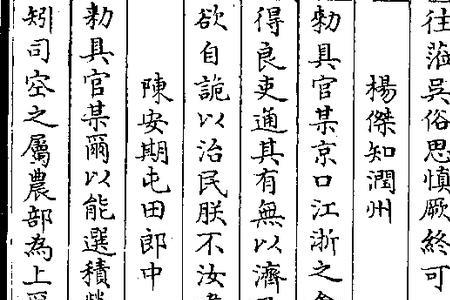 往蒞吳俗思慎厥終可
楊傑知潤州
勑具官某京口江浙之
得良吏通其有無以濟
欲自詭以治民朕不汝
陳安期屯田郎中
勑具官某爾以能選積
矧司空之屬農部為上